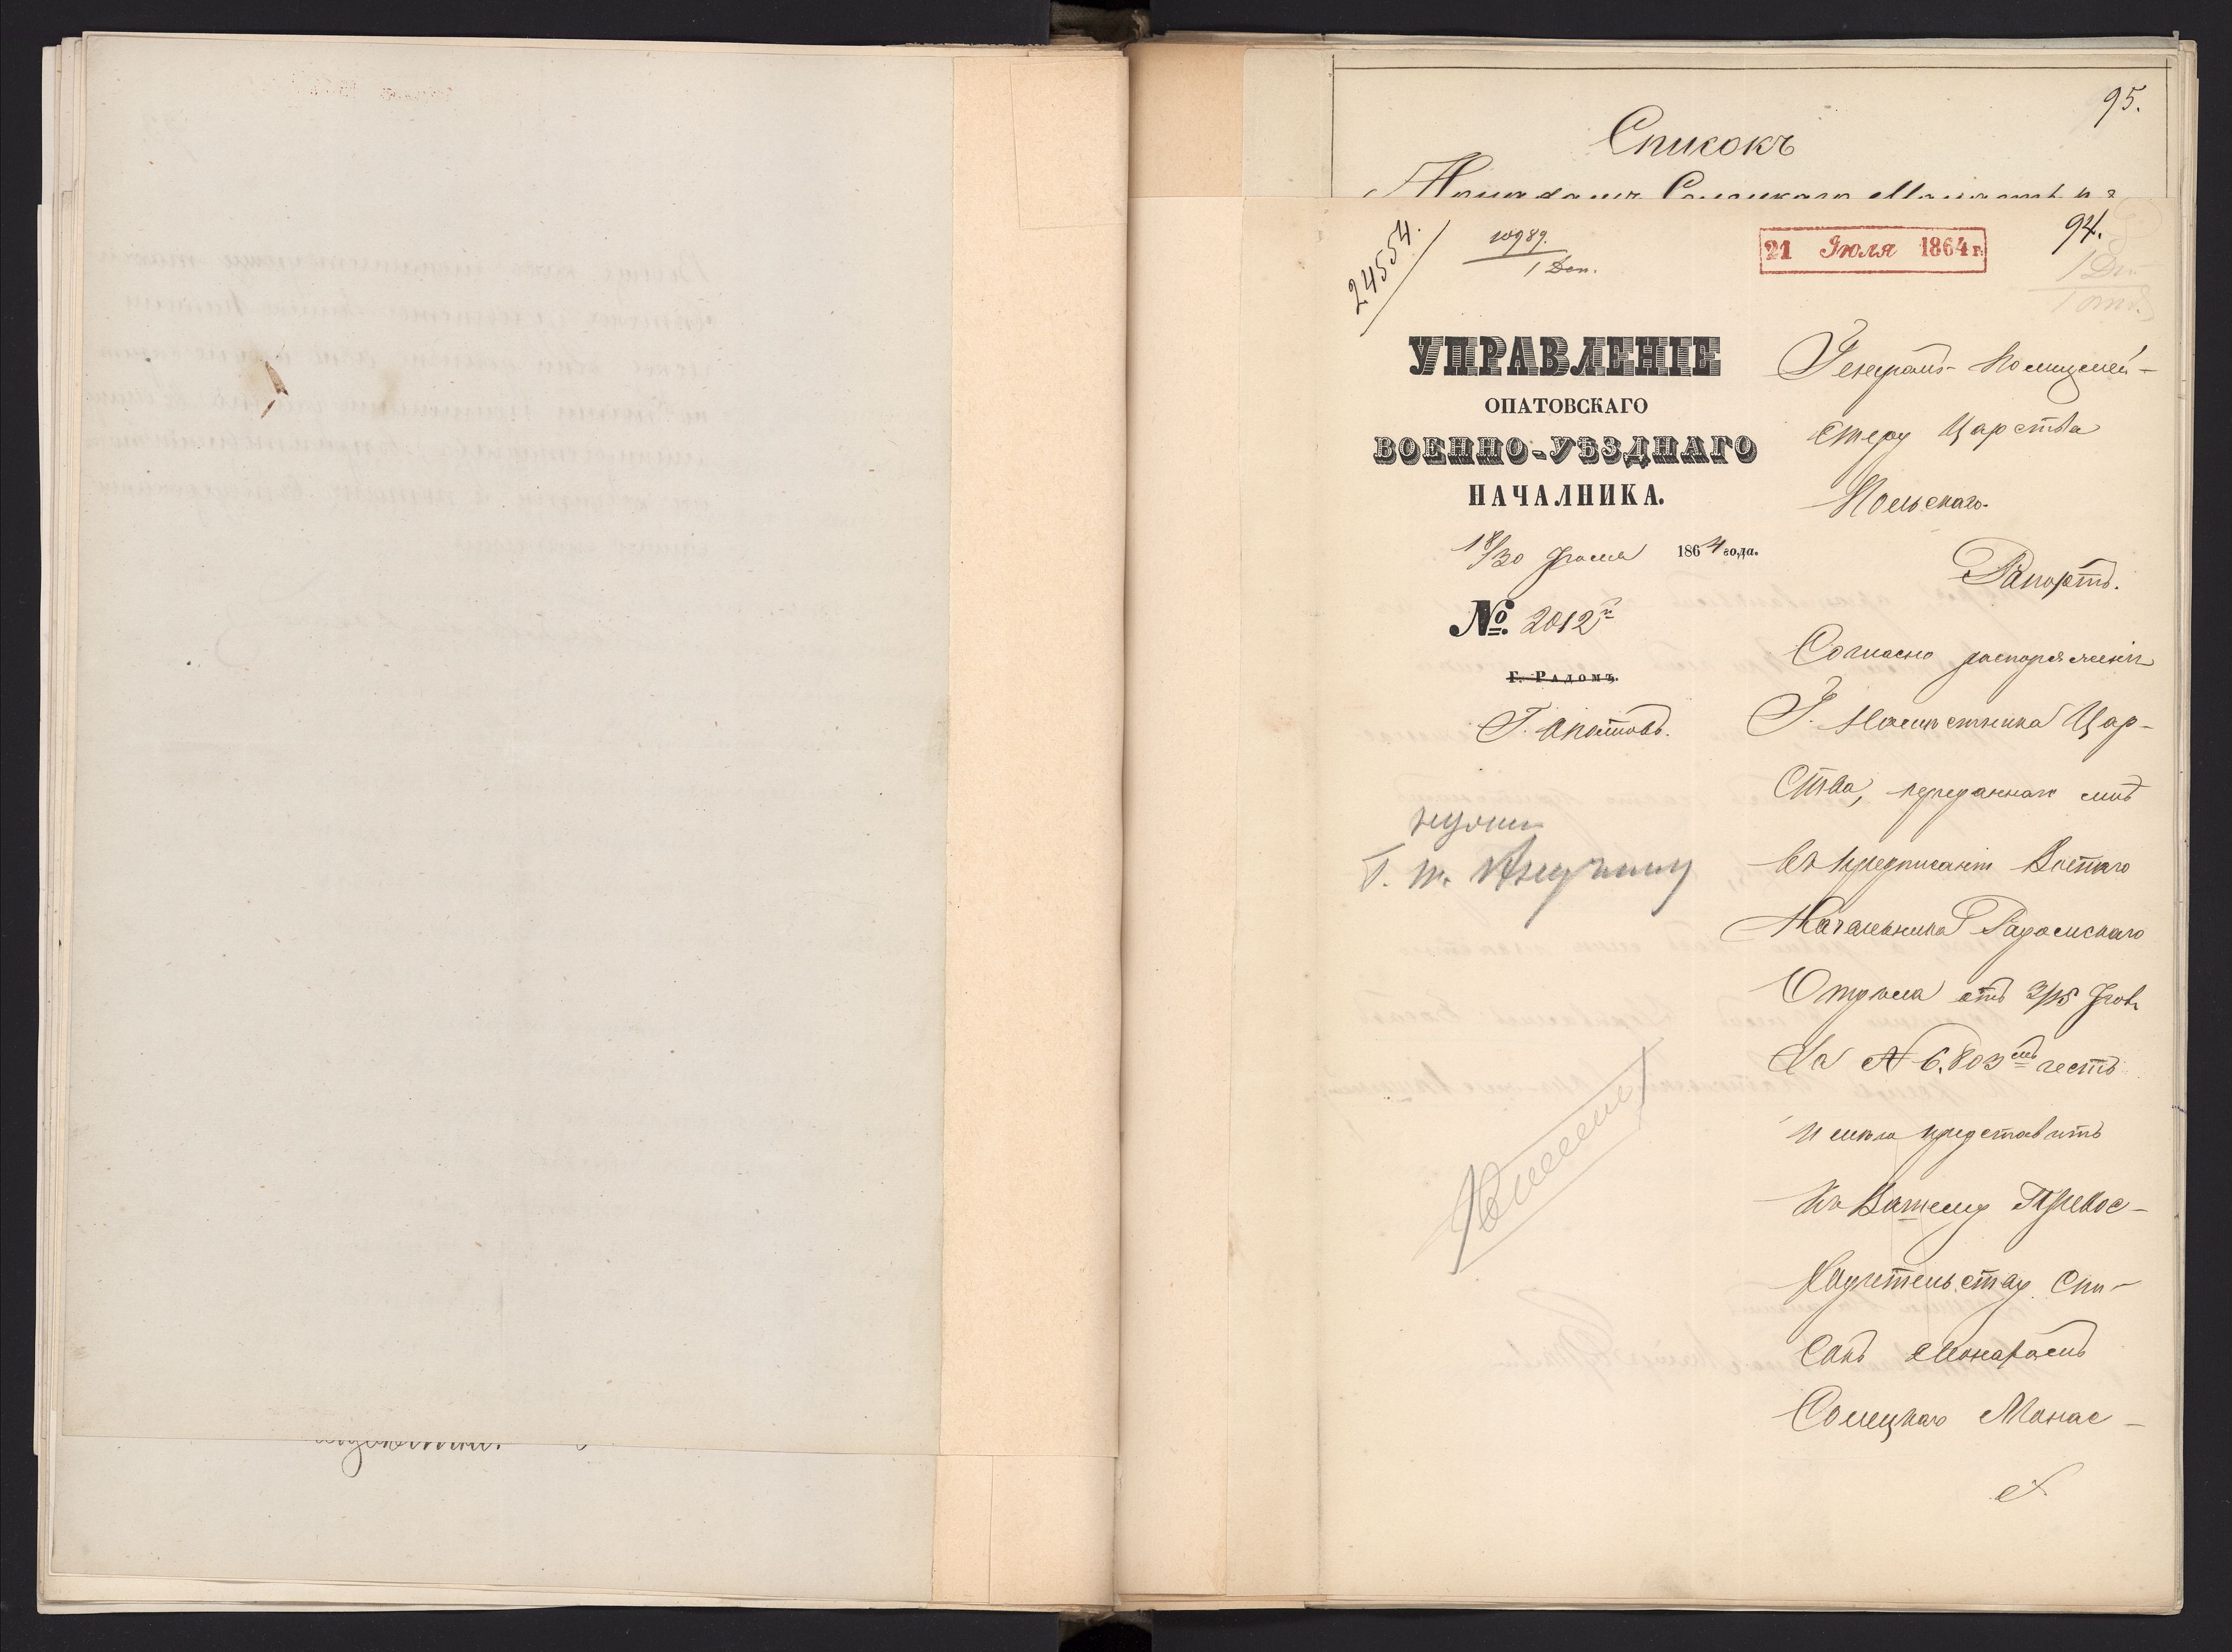 95.
Списокъ
Монахамъ Солецкаго Монастыря
94.
24554.
10989.
1 Деп.
21 Июля 1864 г.
1 Деп.
1 отд.
УПРАВЛЕНІЕ
ОПАТОВСКАГО
ВОЕННО-УѢЗДНАГО
НАЧАЛНИКА.
18/30 Іюля 1864 года.
№ 2012
Г. РАДОМЪ.
Г. Опатовъ.
Г. м. Анучину
Генералъ-Полицмей-
стеру Царства
Польскаго.
Рапортъ.
Согласно распоряженія
Г. Намѣстника Цар-
ства, переданнаго мнѣ
въ предписаніи Военнаго
Начальника Радомскаго
Отдѣла отъ 3/15 Іюля
за № 6.803 честь
имѣю представить
къ Вашему Превос-
ходительству Спи-
сокъ Монахамъ
Солецкаго Монас-